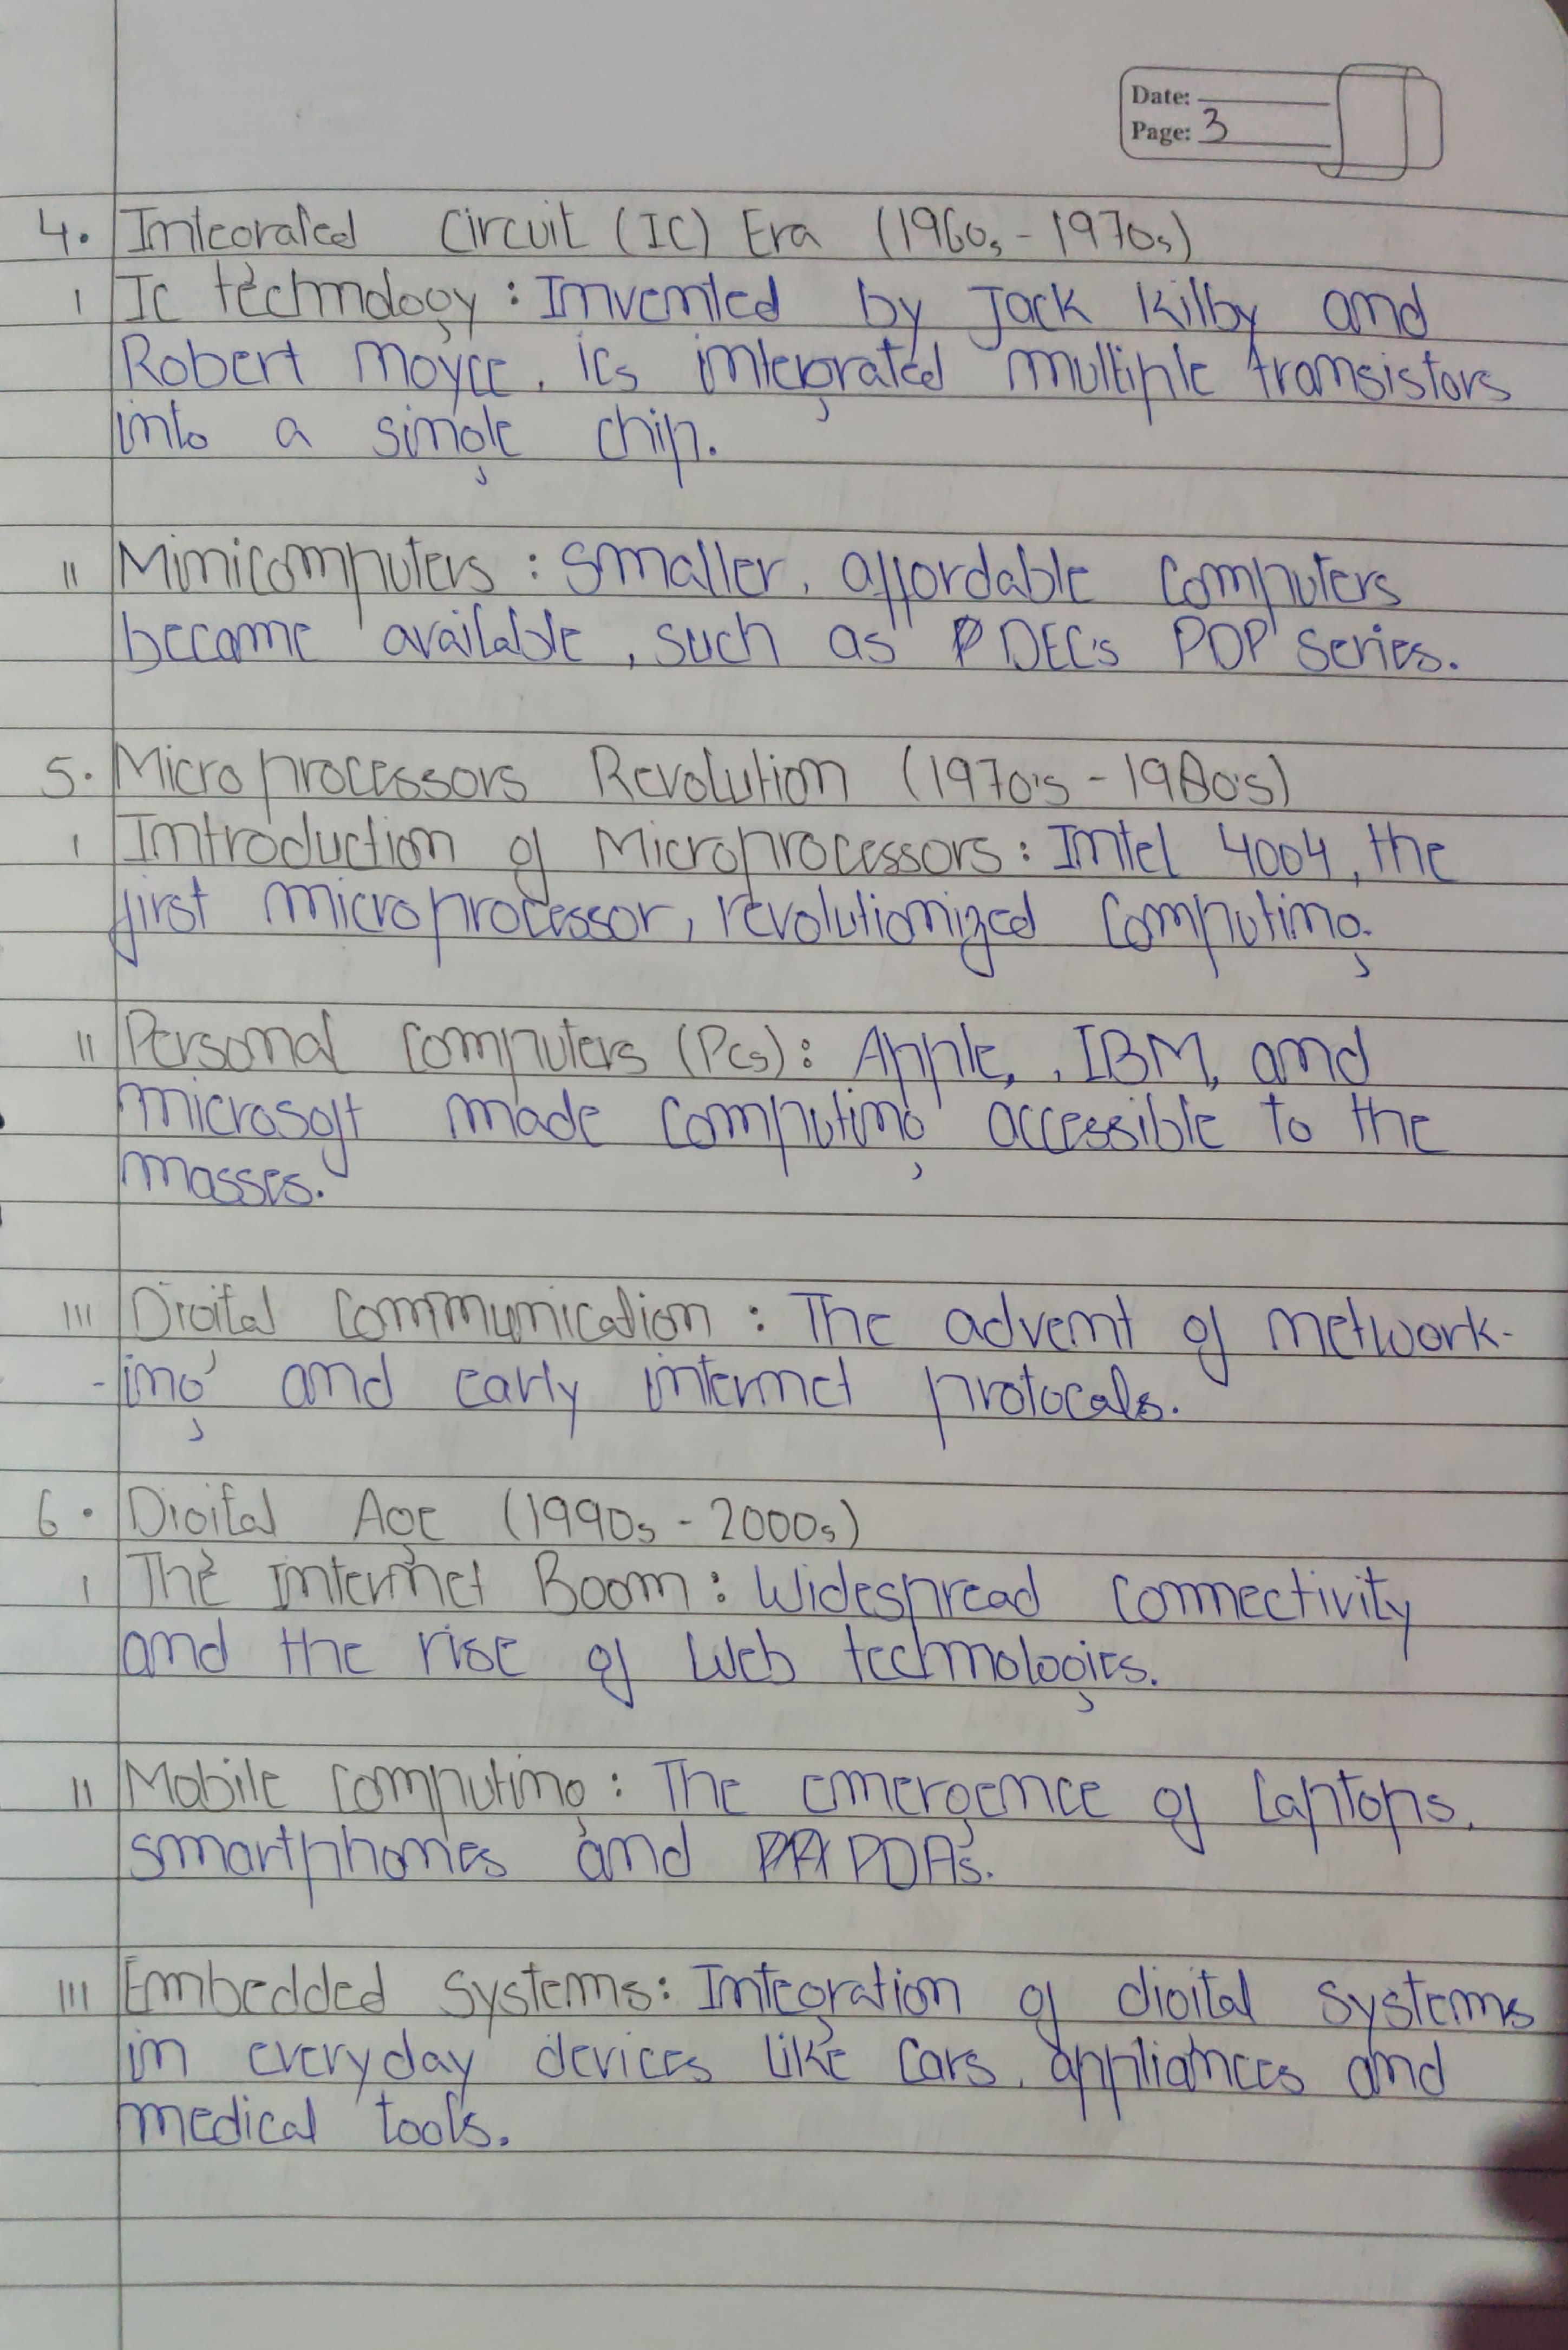 Date:
Page: 3
4. Integrated Circuit (IC) Era (1960s - 1970s)
I Ic technology : Invented by Jack Kilby and
Robert Noyce, ICs integrated multiple transistors
into a single chip.
II Minicomputers : Smaller, affordable computers
became available, such as DEC's PDP series.
5. Microprocessors Revolution (1970's - 1980's)
I Introduction of Microprocessors : Intel 4004, the
first microprocessor, revolutionized computing.
II Personal Computers (PCs) : Apple, , IBM, and
microsoft made computing accessible to the
masses.
III Digital Communication : The advent of network-
-ing and early internet protocals.
6. Digital Age (1990s - 2000s)
I The Internet Boom : Widespread connectivity
and the rise of web technologies.
II Mobile Computing : The emergence of laptops,
smartphones and PDAs.
III Embedded Systems : Integration of digital systems
in everyday devices like cars, appliances and
medical tools.